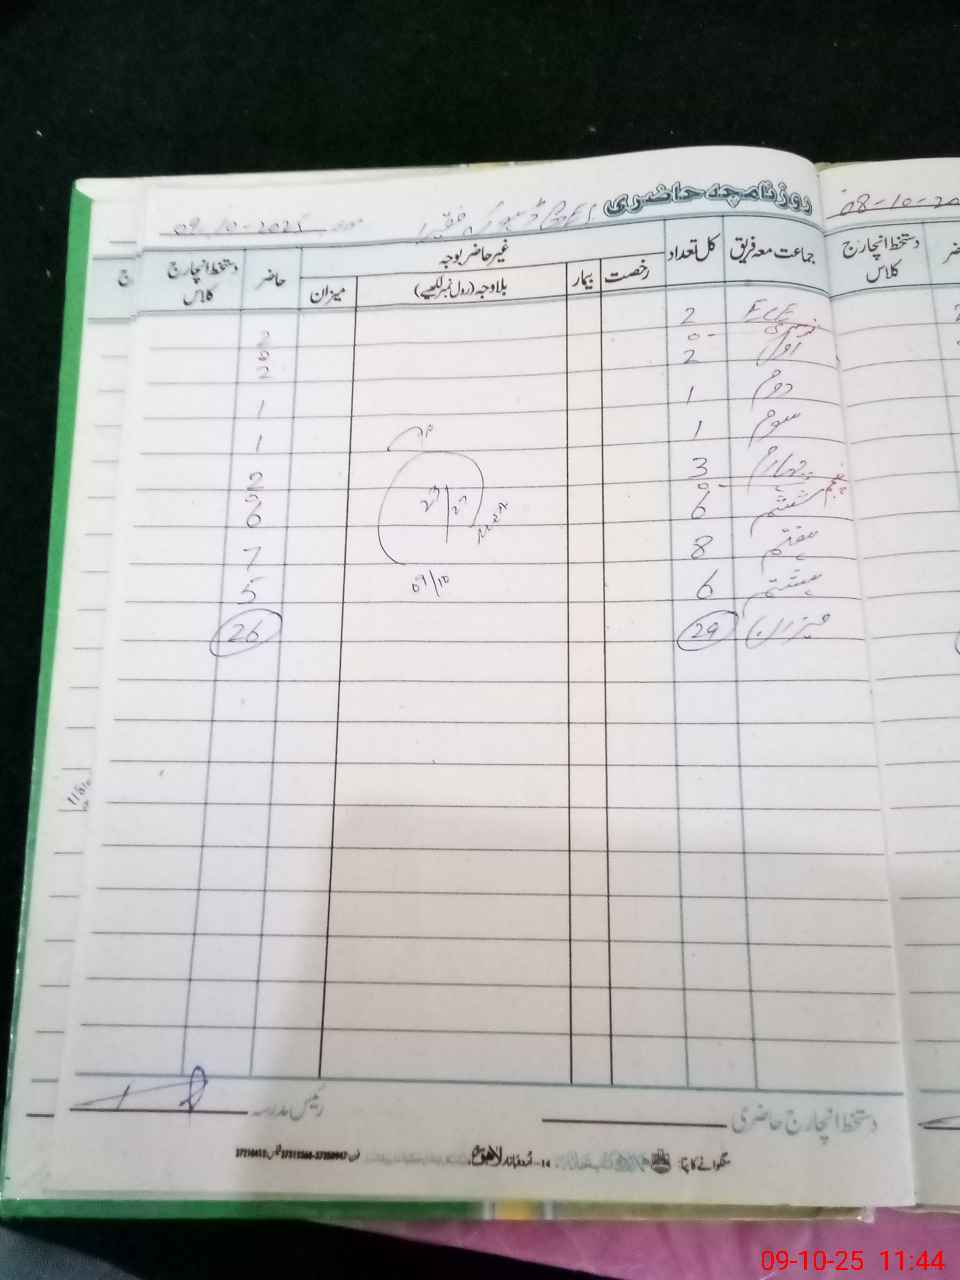 روزنامچہ حاضری GGES مورخہ 09-10-2025
جماعت معہ فریق کل تعداد رخصت بیمار غیر حاضر بوجہ حاضر دستخط انچارج کلاس
بلاوجہ (رول نمبر لکھیے) میزان
ECE 2 2
نرسری 0 0
اول 2 2
دوم 1 1
سوم 1 1
چہارم 3 2
پنجم 0 0
ششم 6 6
ہفتم 8 7
ہشتم 6 5
میزان 29 26
09/10
دستخط انچارج حاضری رئیس مدرسہ
منگوانے کا پتہ: 14-اُردو بازار لاہور
08-10-20
دستخط انچارج کلاس
09-10-25 11:44